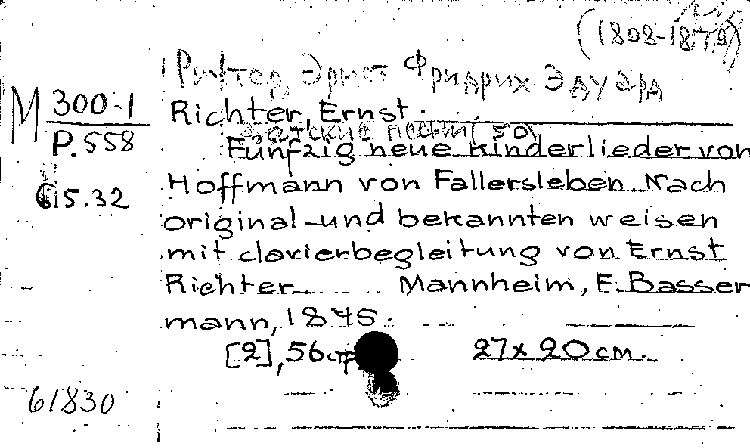 (1808-1879)
Рихтер, Эрнст Фридрих Эдуард
M 300-1
P.558
Richter, Ernst.
Детские песни (50)
Fünfzig neue Kinderlieder von
Hoffmann von Fallersleben. Nach
original- und bekannten weisen
mit clavierbegleitung von Ernst
Richter. Mannheim, F. Basser
mann, 1845.
[2], 56 стр. 27x20 см.
615.32
61830